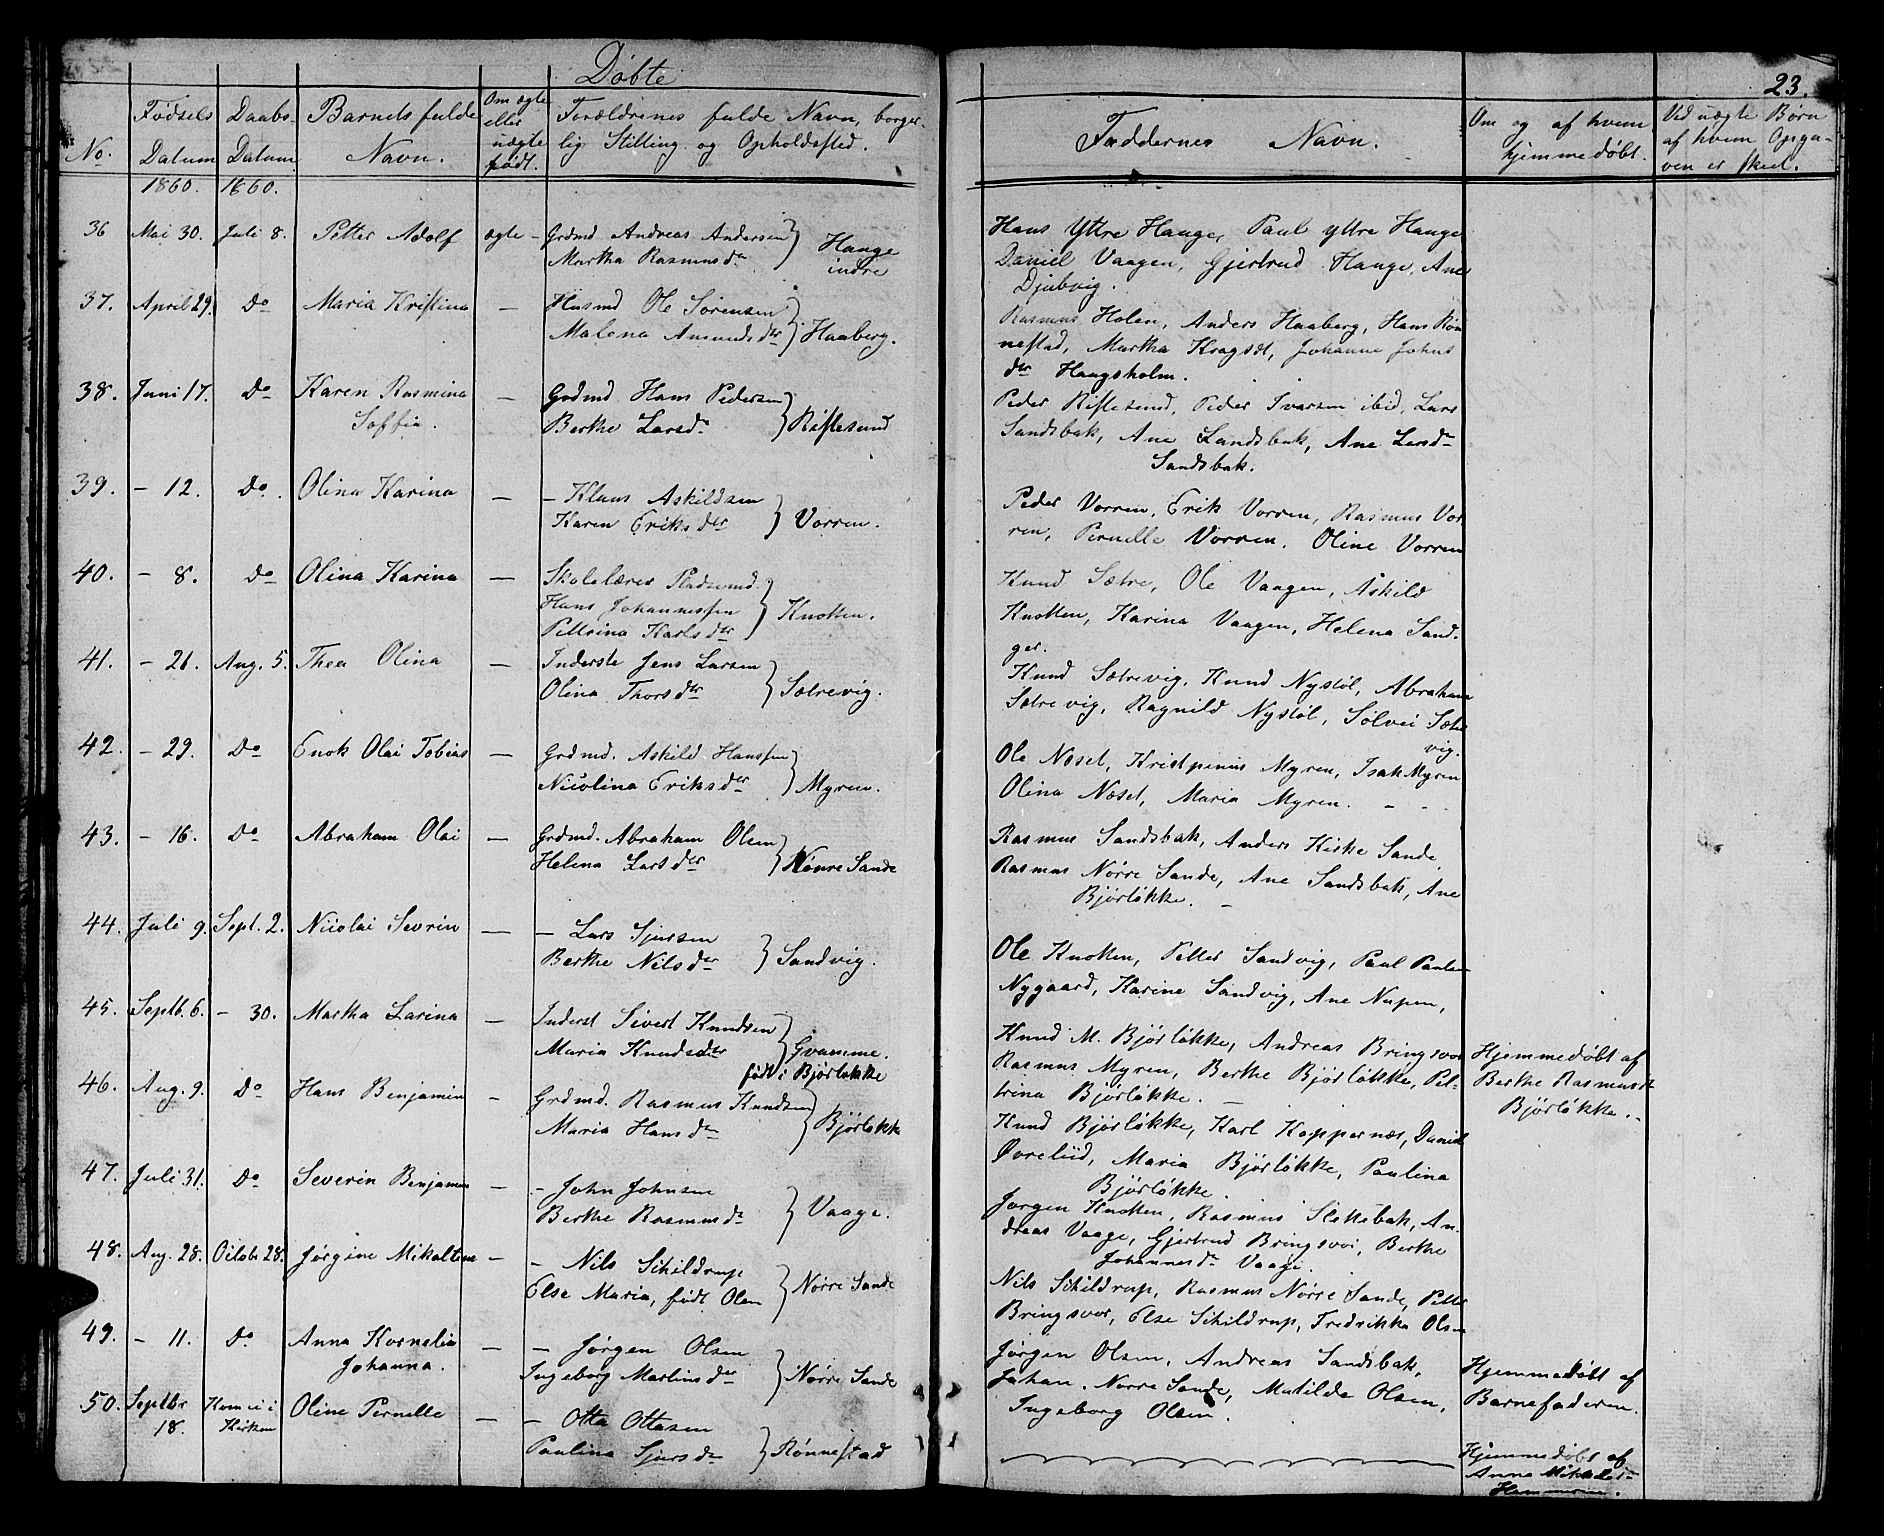 Døbte
23.
No.
Fødsels Datum
Daabs- Datum
Barnets fulde Navn.
Om ægte eller uægte født.
Forældrenes fulde Navn, borger-
lig Stilling og Opholdssted.
Faddernes Navn.
Om og af hvem hjemmedøbt.
Ved uægte Børn af hvem Opga-
ven er skeet.
1860. 1860.
36 Mai 30. Juli 8. Petter Adolf ægte - Grdmd Andreas Andersen
Martha Rasmusdr } Hauge indre
Hans Yttre Hauge, Paul yttre Hauge
Daniel Vaagen, Gjertrud Hauge, Ane
Djubvig.
37. April 29. Do Maria Kristina - Husmd Ole Sørensen
Malena Amundsder } Haaberg.
Rasmus Holen, Anders Haaberg, Hans Røn
nestad, Martha Kragsdt, Johanne Johns
der Haugsholm.
38. Juni 17. Do Karen Rasmina - Grdmd Hans Pedersen
Soffia. Berthe Larsdr } Riflesund
Peder Riflesund, Peder Ivarsen ibid, Lars
Sandsbak, Ane Sandsbak, Ane Larsdr
Sandsbak.
39. - 12. Do. Olina Karina - - Klaus Askildsen
Karen Eriksder } Vorren.
Peder Vorren, Erik Vorren, Rasmus Vor
ren, Pernelle Vorren, Oline Vorren
40. - 8. Do Olina Karina - Skolelærer Pladsemd.
Hans Johannessen
Pettrina Karlsder } Knotten.
Knud Sætre, Ole Vaagen, Askild
Knotten, Karina Vaagen, Helena Sand-
ger.
41. - 21. Aug. 5. Thea Olina - Inderste Jens Larsen
Olina Thorsder } Sætrevig.
Knud Sætrevig, Knud Nystøl, Abraham
Sætrevig, Ragnild Nystøl, Sølvei Sætre
vig.
42. - 29. Do Enok Olai Tobias - Grdmd. Askild Hanssen
Nicolina Eriksder } Myren.
Ole Næset, Kristpinus Myren, Isak Myren
Olina Næset, Maria Myren. - -
43. - 16. Do Abraham Olai - Grdmd. Abraham Olsen
Helena Larsder } Nørre Sande
Rasmus Sandsbak, Anders Kirke Sande,
Rasmus Nørre Sande, Ane Sandsbak, Ane
Bjørløkke. -
44. Juli 9. Sept. 2. Nicolai Sevrin - - Lars Sjursen
Berthe Nilsder } Sandvig.
Ole Knotten, Petter Sandvig, Paul Paulsen
Nygaard, Karine Sandvig, Ane Nupen,
45. Septb. 6. - 30. Martha Larina - Inderst Sivert Knudsen
Maria Knudsder } Gvamme.
født i Bjørløkke
Knud M. Bjørløkke, Andreas Bringsvor
Rasmus Myren, Berthe Bjørløkke, Pet-
trina Bjørløkke. -
Hjemmedøbt af
Berthe Rasmusdr
Bjørløkke.
46. Aug. 9. Do Hans Benjamin - Grdmd. Rasmus Knudsen
Maria Hansdr } Bjørløkk
Knud Bjørløkke, Karl Koppernæs, Daniel
Øvreliid, Maria Bjørløkke, Paulina
Bjørløkke.
47. Juli 31. Do Severin Benjamin - - John Johnsen
Berthe Rasmusdr } Vaage.
Jørgen Knotten, Rasmus Slettebak, An-
dreas Vaage, Gjertrud Bringsvor, Berthe
Johannesdr Vaage.
48. Aug. 28. Octobr 28. Jørgine Mikaltine - - Nils Schildrup
Else Maria, født Olsen } Nørre Sande
Nils Schildrup, Rasmus Nørre Sande, Petter
Bringsvor, Else Schildrup, Fredrikka Olsen
49. - 11. Do Anna Kornelia - - Jørgen Olsen
Johanna. Ingeborg Martinsder } Nørre Sande
Jørgen Olsen, Andreas Sandsbak,
Johan Nørre Sande, Matilde Olsen,
Ingeborg Olsen.
Hjemmedøbt af
Barnefaderen.
50. Septbr 18. Kom ei i Kirken Oline Pernelle - - Otto Ottosen
Paulina Sjursdr } Rønnestad
Hjemmedøbt af
Anna